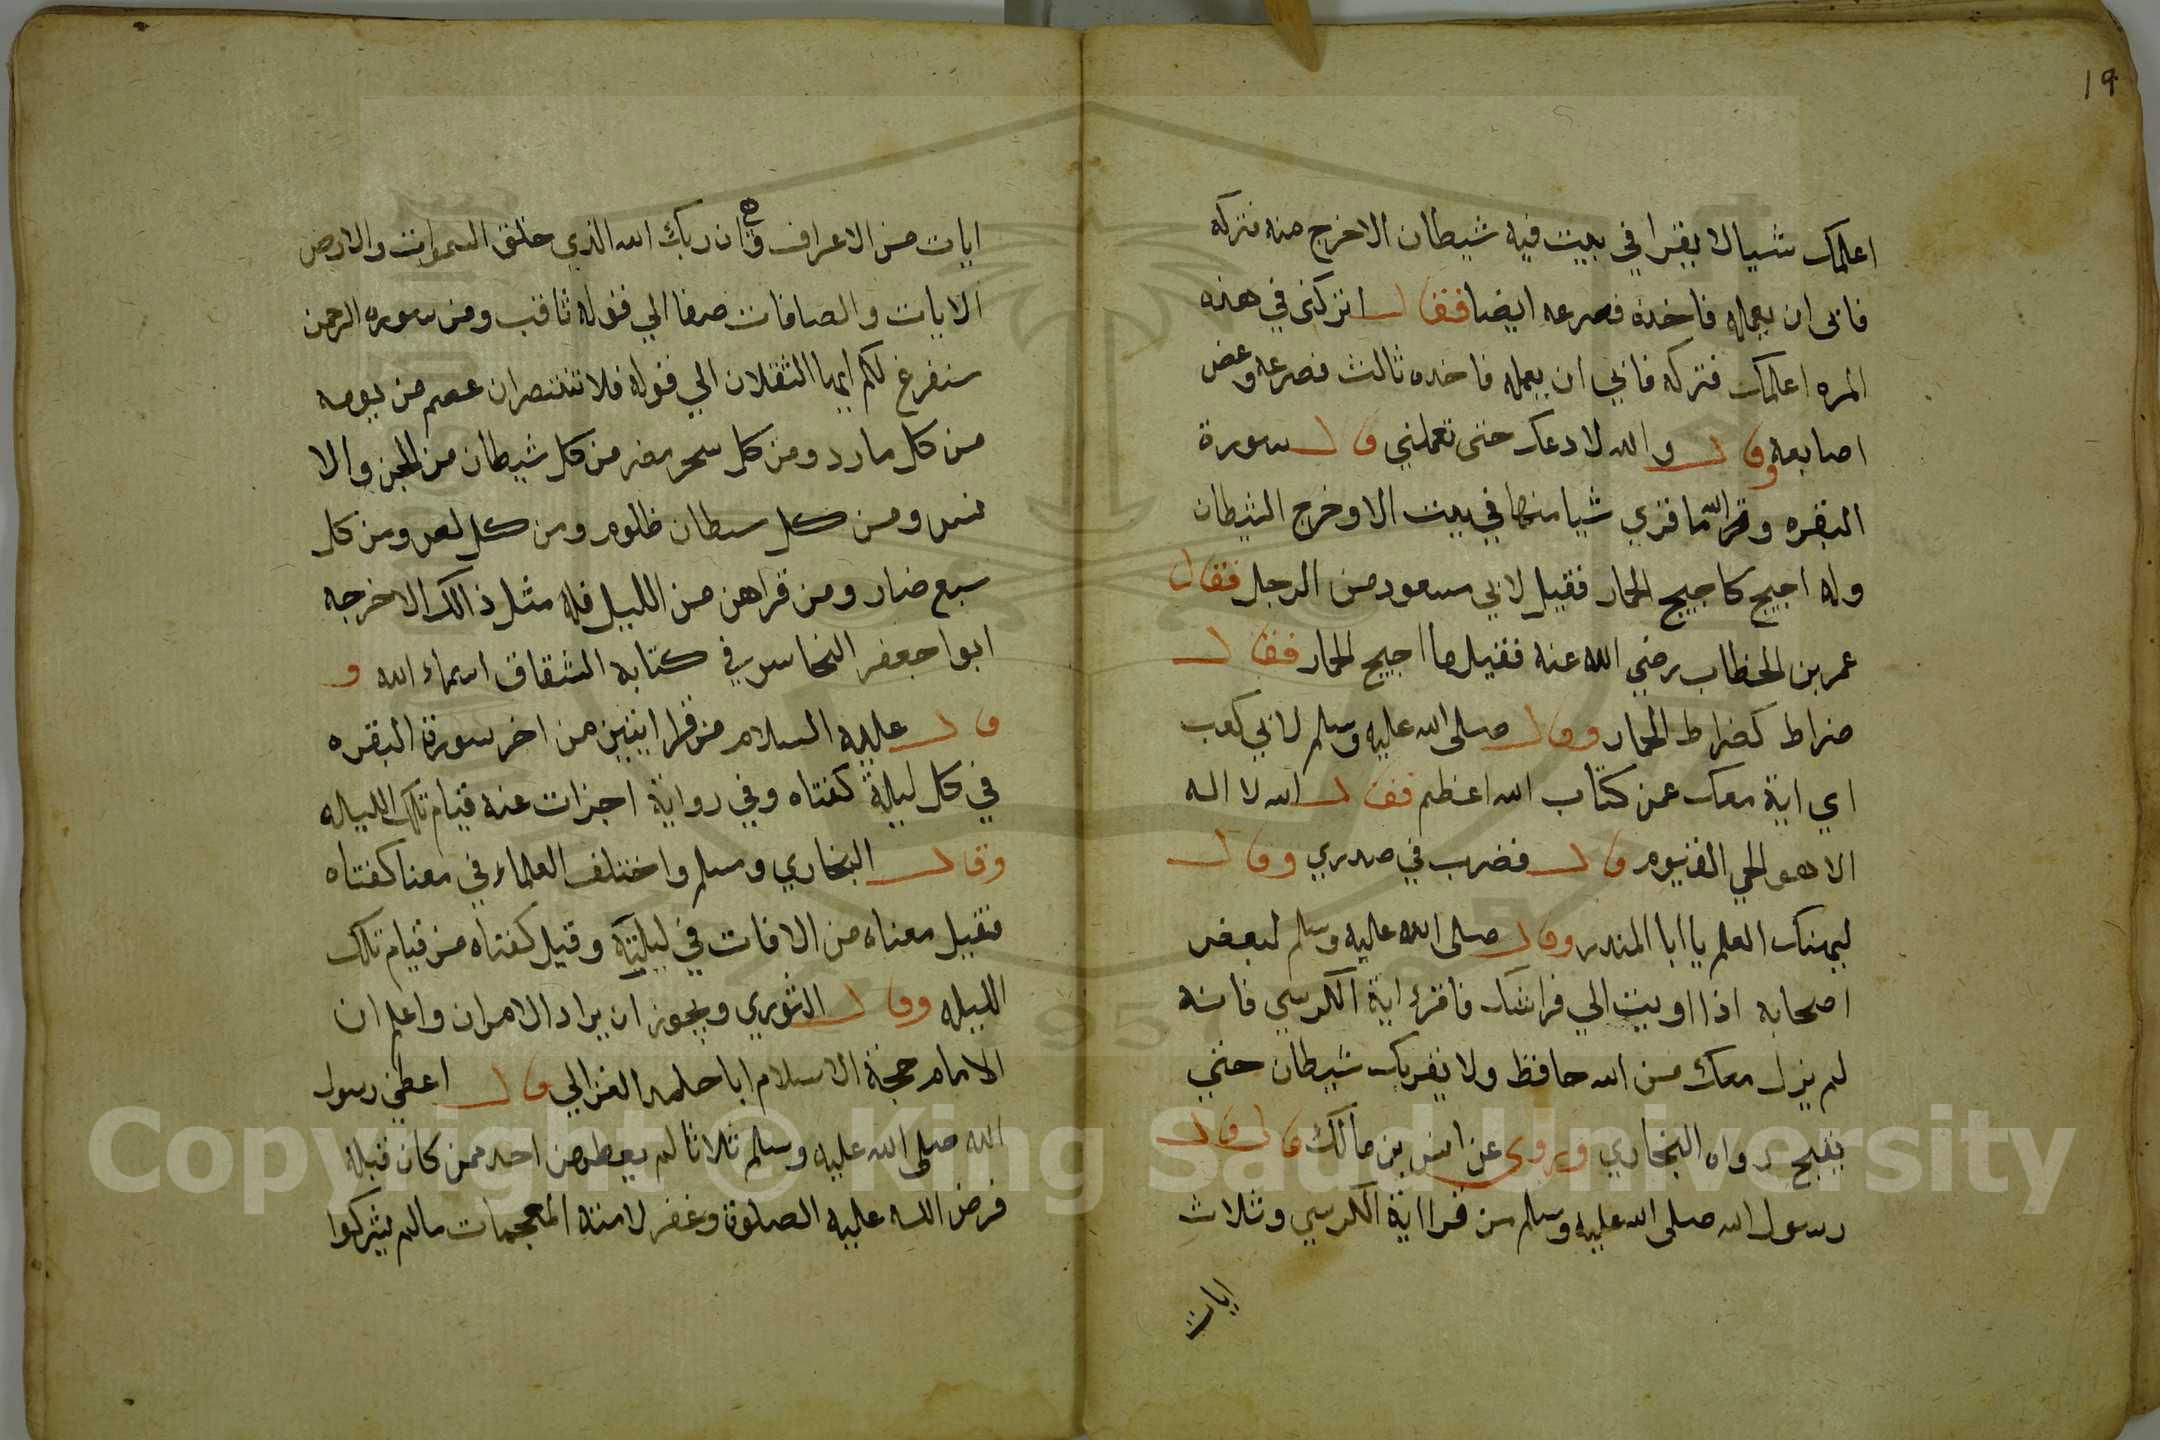 ١٩
اعلمك شيا لا يقرا في بيت فيه شيطان الا خرج منه فتركه
فابى ان يعمله فاخده فصرعه ايضا فقال اتركني في هذه
المره اعلمك فتركه فابي ان يعمله فاخده ثالث فصرعه وعض
اصابعه وقال والله لا دعك حتى تعملني قال سورة
البقره والله ما قري شيا منها في بيت الا وخرج الشيطان
وله اجيج كاجيج الحمار فقيل لابي مسعود من الرجل فقال
عمر بن الخطاب رضي الله عنه فقيل ما اجيج الحمار فقال
ضراط كضراط الحمار وقال صلى الله عليه وسلم لابي كعب
اي اية معك عمن كتاب الله اعظم فقال الله لا اله
الا هو الحي القيوم قال فضرب في صدري وقال
ليهنك العلم يا ابا المندر وقال صلى الله عليه وسلم لبعض
اصحابه اذا اويت الي فراشك فاقرء اية الكرسي فانه
لم يزل معك من الله حافظ ولا يقربك شيطان حتي
يفبح رواه البخاري ويروى عن انس بن مالك قال قال
رسول الله صلى الله عليه وسلم من قرا اية الكرسي وثلاث
ايات
ايات من الاعراف ان ربك الله الذي خلق السموات والارض
الايات والصافات صفا الي قوله ثاقب ومن سوره الرحمن
سنفرغ لكم ايها الثقلان الي قوله فلا تنتصران عصم من يومه
من كل مارد ومن كل سحر مضر من كل شيطان من الجن والا
نس ومن كل سطان ظلوم ومن كل لص ومن كل
سبع ضار ومن قراهن من الليل فله مثل ذالك الاخرجه
ابوا جعفر النحاس في كتابه الشقاق اسماء الله و
قال عليه السلام من قرا ايتين من اخر سورة البقره
في كل ليلة كفتاه وفي رواية اجزات عنه قيام تلك الليله
وقال البخاري ومسلم واختلف العلماء في معنا كفتاه
فقيل معناه من الافات في ليلته وقيل كفتاه من قيام تلك
الليله وقال الثوري ويجوز ان يراد الامران واعلم ان
الامام حجة الاسلام ابا حامد الغزالي قال اعطي رسول
الله صلى الله عليه وسلم ثلاثا لم يعطهن احد ممن كان قبله
فرض الله عليه الصلوة وغفر لامته المعجمات مالم يشركوا
Copyright © King Saud University